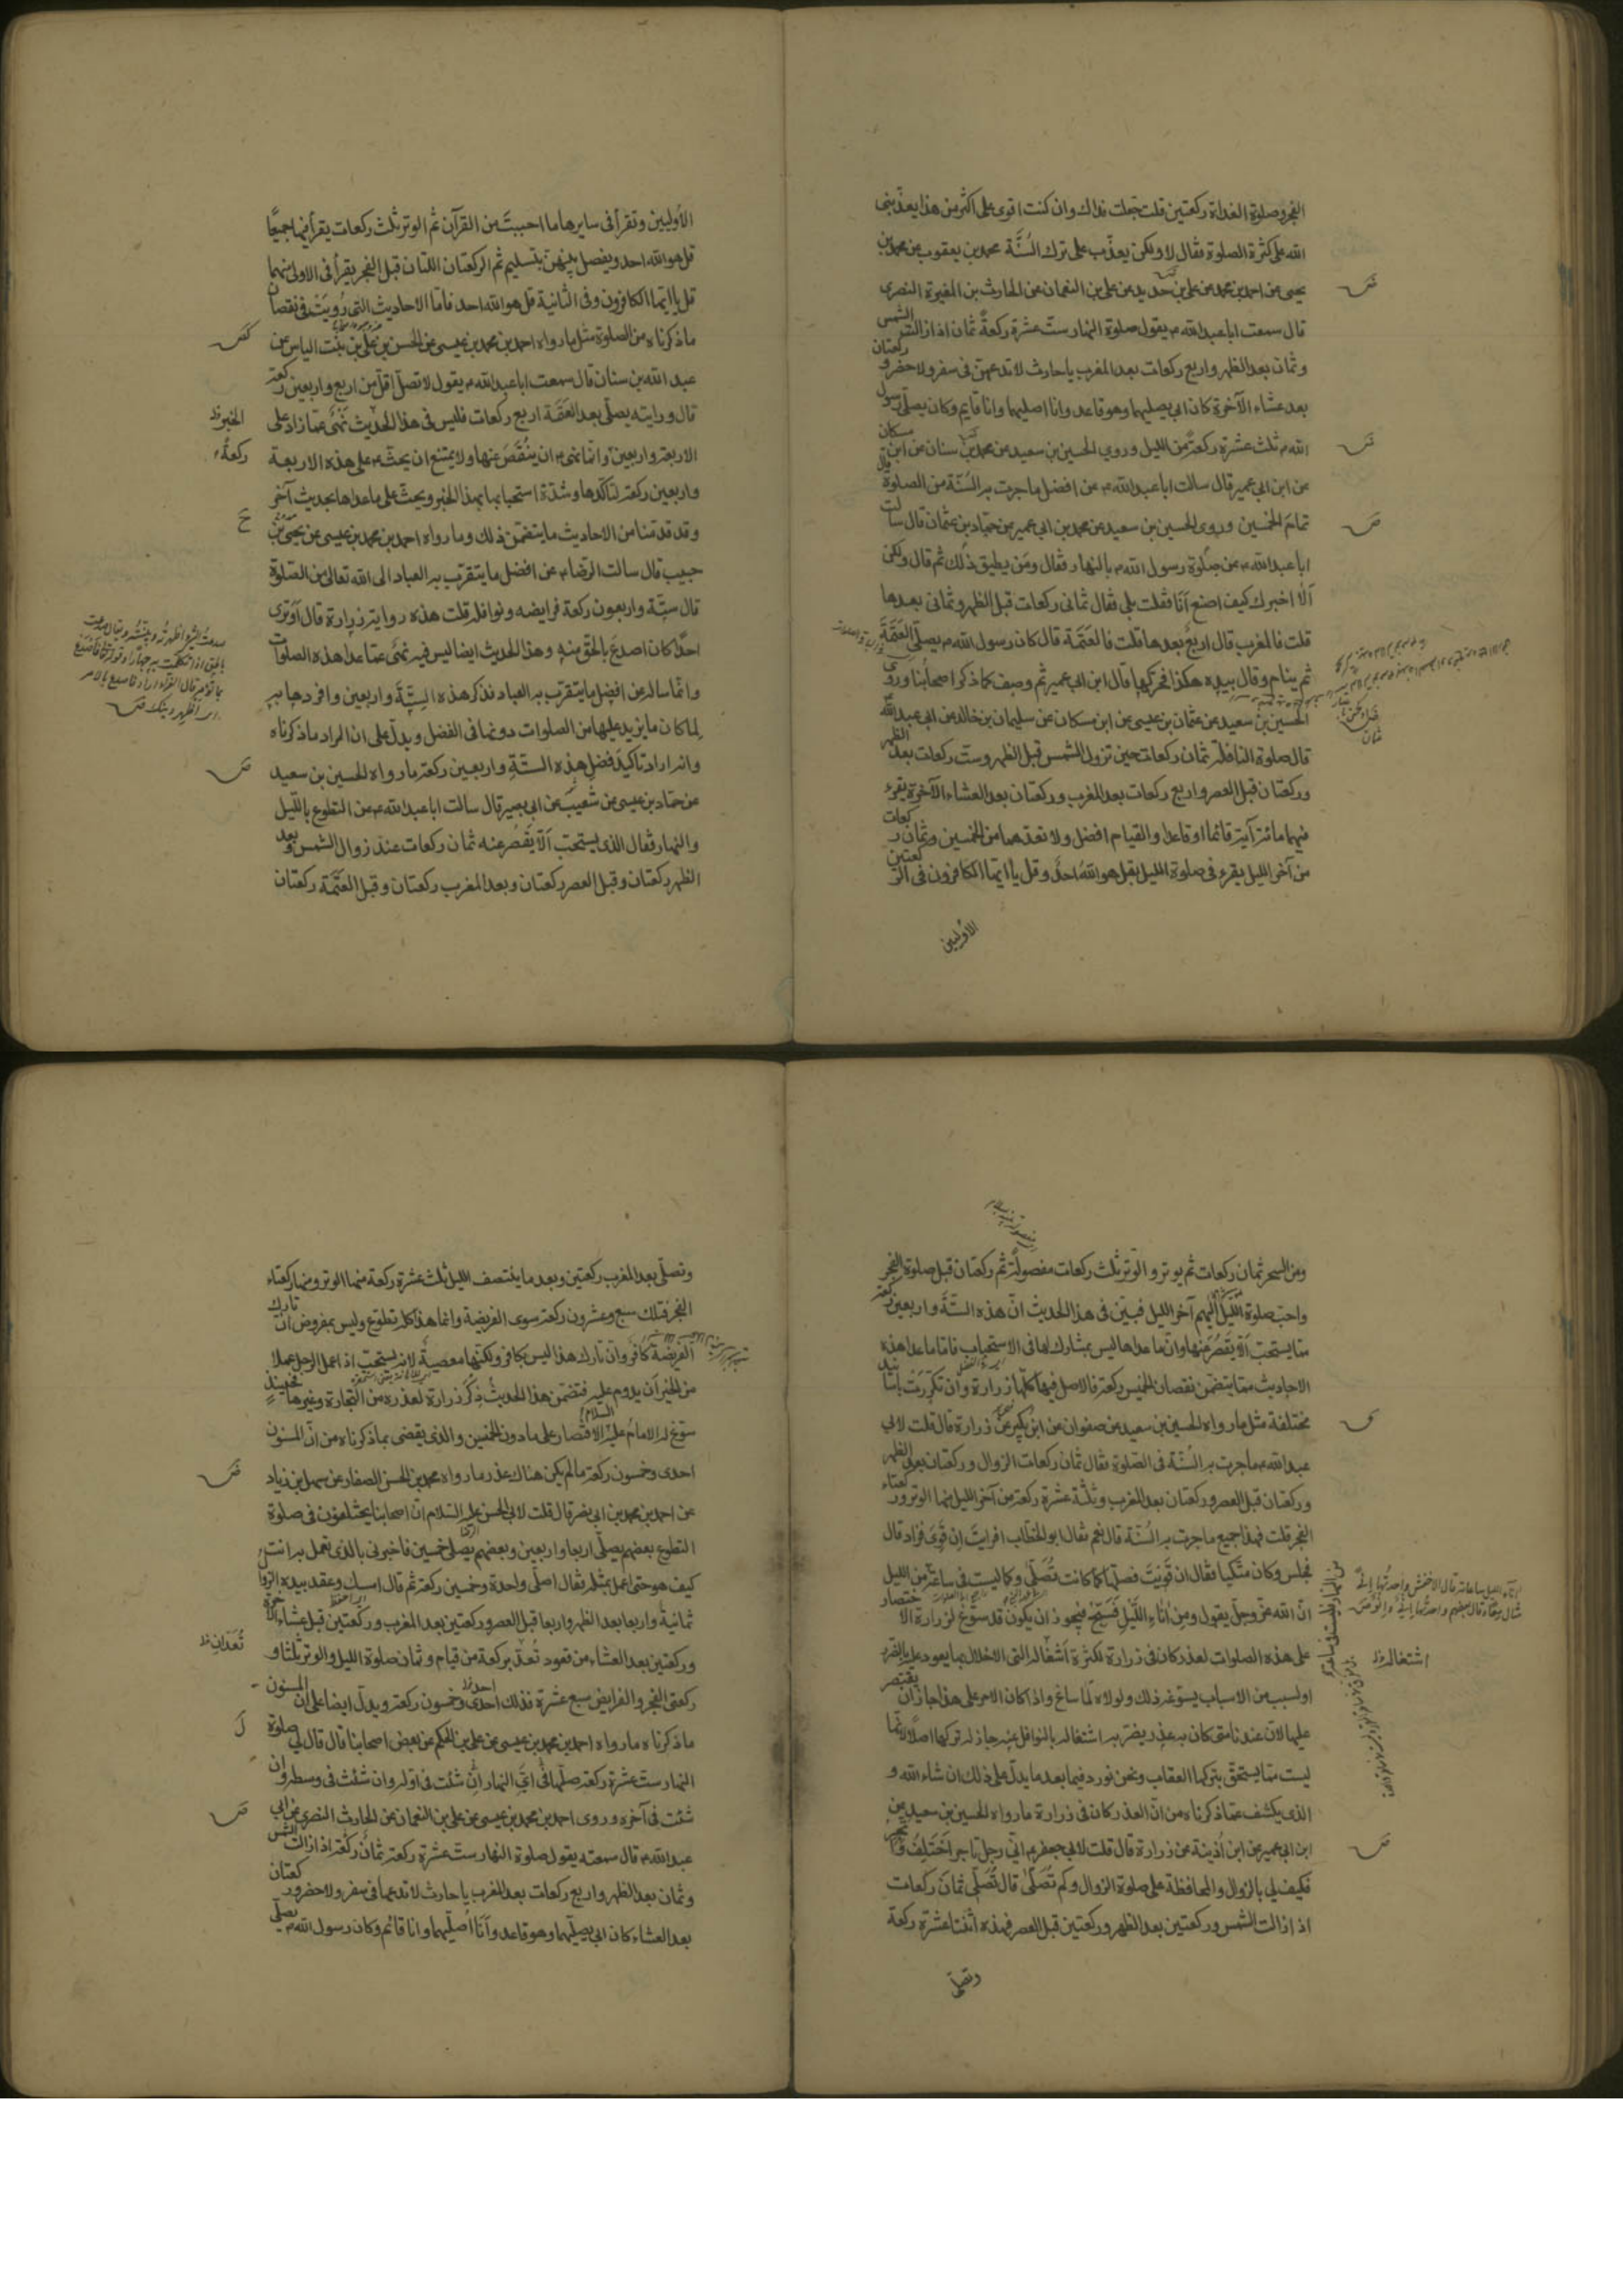 الفجر وصلوة الغداة ركعتين قلت جعلت فداك وان كنت اقوى على اكثر من هذا يعذبنى
الله على كثرة الصلوة فقال لا ولكن يعذّب على ترك السُنَّة محمد بن يعقوب عن محمد بن
يحيى عن احمد بن محمد عن على بن حديد عن على بن النعمان عن الحارث بن المغيرة النصرى
قال سمعت ابا عبد الله م يقول صلوة النهار ستّ عشرة ركعةً ثمان اذا زالت الشمس
وثمان بعد الظهر واربع ركعات بعد المغرب يا حارث لا تدعهن فى سفر ولا حضر و ركعتان
بعد عشاء الآخرة كان ابى يصليهما وهو قاعد وانا اصليهما وانا قايم وكان يصلّى رسول
الله م ثلث عشرة ركعةً من الليل وروى الحسين بن سعيد عن محمد بن سنان عن ابن مسكان
عن ابن ابى عمير قال سالت ابا عبد الله م عن افضل ما جرت به السُنّة من الصلوة قال
تمامَ الخمسين وروى الحسين بن سعيد عن محمد بن ابى عمير عن حمّاد بن عثمان قال سالت
ابا عبد الله م عن صلوة رسول الله م بالنهار فقال ومَن يطيق ذلك ثم قال ولكن
اَلا اخبرك كيف اصنع اَنَا فقلت بلى فقال ثمانى ركعات قبل الظهر وثمانى بعدها
قلت فالمغرب قال اربعٌ بعدها قلت فالعَتَمَة قال كان رسول الله م يصلّى العَتَمَةَ
ثم ينام وقال بيده هكذا فحركها قال ابن ابى عمير ثم وصف كما ذكر اصحابُنا وروى
الحسين بن سعيد عن عثمان بن عيسى عن ابن مسكان عن سليمان بن خالد عن ابى عبد الله
قال صلوة النافلة ثمان ركعات حين تزول الشمس قبل الظهر وست ركعات بعد الظهر
وركعتان قبل العصر واربع ركعات بعد المغرب وركعتان بعد العشاء الآخرة يقرء
فيهما مائة آية قائما او قاعدا والقيام افضل ولا تعدهما من الخمسين وثمان ركعات
من آخر الليل يقرء فى صلوة الليل بقل هو اللهُ احدٌ وقل يا ايها الكافرون فى الركعتين
الأوليين
الأُوليين وتقرأ فى سايرها ما احببتَ من القرآن ثم الوتر ثلث ركعات يقرأ فيها جميعًا
قل هو الله احد ويفصل بينهن بتسليم ثم الركعتان اللتان قبل الفجر يقرأ فى الاولى منهما
قل يا ايها الكافرون وفى الثانية قل هو الله احد فامّا الاحاديث التى رُويَتْ فى نقصان
ماذكرناه من الصلوة مثل ما رواه احمد بن محمد بن عيسى عن الحسن بن على بن بنت الياس عن
عبد الله بن سنان قال سمعت ابا عبد الله م يقول لا تصلّ اقلّ من اربع واربعين ركعة
قال ورايته يصلّى بعد العَتَمَة اربع ركعات فليس فى هذا الحديث نَهْىٌ عمّا زاد على
الخبر ظ
الاربعة واربعين وانما نهى م ان يُنْقَصَ عنها ولا يمتنع ان يحثّ م على هذه الاربعة
ركعةً
واربعين ركعة لتاكّدها وشدّة استحبابها بهذا الخبر ويحثّ على ماعداها بحديث آخر
وقد قدّمنا من الاحاديث ما يتضمّن ذلك وما رواه احمد بن محمد بن عيسى عن يحيى بن
حبيب قال سالت الرضا م عن افضل ما يتقرّب به العباد الى الله تعالى من الصّلوة
قال ستّة واربعون ركعة فرايضه ونوافله قلت هذه رواية زرارة قال اَوَترى
احدًا كان اصدعَ بالحقِّ منه وهذا الحديث ايضا ليس فيه نهىٌ عمّا عدا هذه الصلوات
وانّما ساله عن افضل ما يتقرّب به العباد فذكر هذه السِتَّةَ واربعين وافردها به
لِما كان ما يزيد عليها من الصلوات دونها فى الفضل ويدلّ على ان المراد ماذكرناه
وانه اراد تاكيدَ فضلِ هذه الستّةِ واربعين ركعة ما رواه الحسين بن سعيد
عن حمّاد بن عيسى عن شُعيبٍ عن ابى بصير قال سالت ابا عبد الله م عن التطوع باللّيل
والنهار فقال الذى يستحبّ اَلّا يَقْصُرَ عنه ثمان ركعات عند زوال الشمس وبعد
الظهر ركعتان وقبل العصر ركعتان وبعد المغرب ركعتان وقبل العَتَمَة ركعتان
ومن السحر ثمان ركعات ثم يوتر والوتر ثلث ركعات مفصولةً ثم ركعتان قبل صلوة الفجر
واحبّ صلوة اللّيل اليهم آخر الليل فبيّن فى هذا الحديث انّ هذه الستّة واربعين ركعة
ممّا يستحبّ اَلّا يَقْصُرَ عنها وان ماعداها ليس بمشارك لها فى الاستحباب فامّا ماعدا هذه
الاحاديث ممّا يتضمّن نقصان الخمسين ركعة فالاصل فيها كلّها زرارة وان تكرّرت باسانيد
مختلفة مثل ما رواه الحسين بن سعيد عن صفوان عن ابن بُكير عن زرارة قال قلت لابى
عبد الله م ماجرت به السُنّة فى الصّلوة فقال ثمان ركعات الزوال وركعتان بعد الظهر
وركعتان قبل العصر وركعتان بعد المغرب وثلثة عشرة ركعة من آخر الليل منها الوتر وركعتاء
الفجر قلت فهذا جميع ماجرت به السُنّة قال نعم فقال ابو الخطّاب افرايتَ اِن قَوِىَ فزاد قال
فجلس وكان متّكيا فقال ان قَوِيْتَ فصلّها كما كانت تُصَلّى وكما ليست فى ساعةٍ من الليل
انّ الله عزّ وجلّ يقول ومن اٰناءِ اللَّيْلِ فَسَبِّحْ فيجوز ان يكون قد سوّغ لزرارة الاختصار
على هذه الصلوات لعذر كان فى زرارة لكثرة اَشْغاله التى الاخلال بها يعود عليه بالضرر
اشتغاله ظ
او لسبب من الاسباب يسوّغه ذلك ولولاه لَما ساغ واذا كان الامر على هذا جاز ان يقتصر
عليها لانّ عندنا متى كان به عذر يضرّ به اشتغاله بالنوافل عنه جاز له تركها اصلًا لانها
ليست ممّا يستحقّ بتركها العقاب ونحن نورد فيما بعد ما يدلّ على ذلك ان شاء الله و
الذى يكشف عمّا ذكرناه من انّ العذر كان فى زرارة ما رواه الحسين بن سعيد عن
ابن ابى عمير عن ابن اُذَينة عن زرارة قال قلت لابى جعفر م انّى رجل تاجر اَخْتَلِفُ واَتّجر
فكيف لى بالزوال والمحافظة على صلوة الزوال وكم تُصَلّى قال تُصَلّى ثمانَ ركعات
اذا زالت الشمس وركعتين بعد الظهر وركعتين قبل العصر فهذه اثنتا عشرة ركعة
وتصلّى
وتصلّى بعد المغرب ركعتين وبعد ما ينتصف الليل ثلث عشرة ركعة منها الوتر ومنها ركعتاء
الفجر فتلك سبع وعشرون ركعة سوى الفريضة وانما هذا كله تطوّع وليس بمفروض انّ تارك
الفريضة كافر وان تارك هذا ليس بكافر ولكنّها معصيةٌ لانه يستحبّ اذا عمل الرجل عملا
من الخير اَن يدوم عليه فتضمّن هذا الحديثُ ذِكْرَ زرارة لعذره من التجارة وغيرها فحينئذٍ
سوّغ له الامام عليه السلام الاقتصار على ما دون الخمسين والذى يقضى بما ذكرناه من انّ المسنون
احدى وخمسون ركعة مالم يكن هناك عذر ما رواه محمد بن الحسن الصفار عن سهل بن زياد
عن احمد بن محمد بن ابى نصر قال قلت لابى الحسن عليه السّلام انّ اصحابنا يختلفون فى صلوة
التطوع بعضهم يصلّى اربعا واربعين وبعضهم يصلّى خمسين فاخبرنى بالذى تعمل به انت
كيف هو حتى اعمل بمثله فقال اصلّى واحدة وخمسين ركعة ثم قال امسك وعقد بيده الزوال
ثمانيةً واربعا بعد الظهر واربعا قبل العصر وركعتين بعد المغرب وركعتين قبل عشاء الآخرة
وركعتين بعد العشاء من قعود تُعدّ بركعة من قيام وثمان صلوة الليل والوتر ثلثا و
تُعَدّانِ ظ
ركعتى الفجر والفرايض سبع عشرة فذلك احدى وخمسون ركعة ويدلّ ايضا على ان المسنون
ماذكرناه ما رواه احمد بن محمد بن عيسى عن على بن الحكم عن بعض اصحابنا قال قال لى صلوة
النهار ستّ عشرة ركعة صلّها فى اَىِّ النهار انْ شئت فى اوّله وان شئت فى وسطه وان
شئت فى آخره وروى احمد بن محمد بن عيسى عن على بن النعمان عن الحارث النصرى عن ابى
عبد الله م قال سمعته يقول صلوة النهار ستّ عشرة ركعة ثمانُ ركعة اذا زالت الشمس
وثمان بعد الظهر واربع ركعات بعد المغرب يا حارث لا تدعها فى سفر ولا حضر وركعتان
بعد العشاء كان ابى يصلّيهما وهو قاعد وَاَنَا اُصلّيهما وانا قائم وكان رسول الله م يصلّى